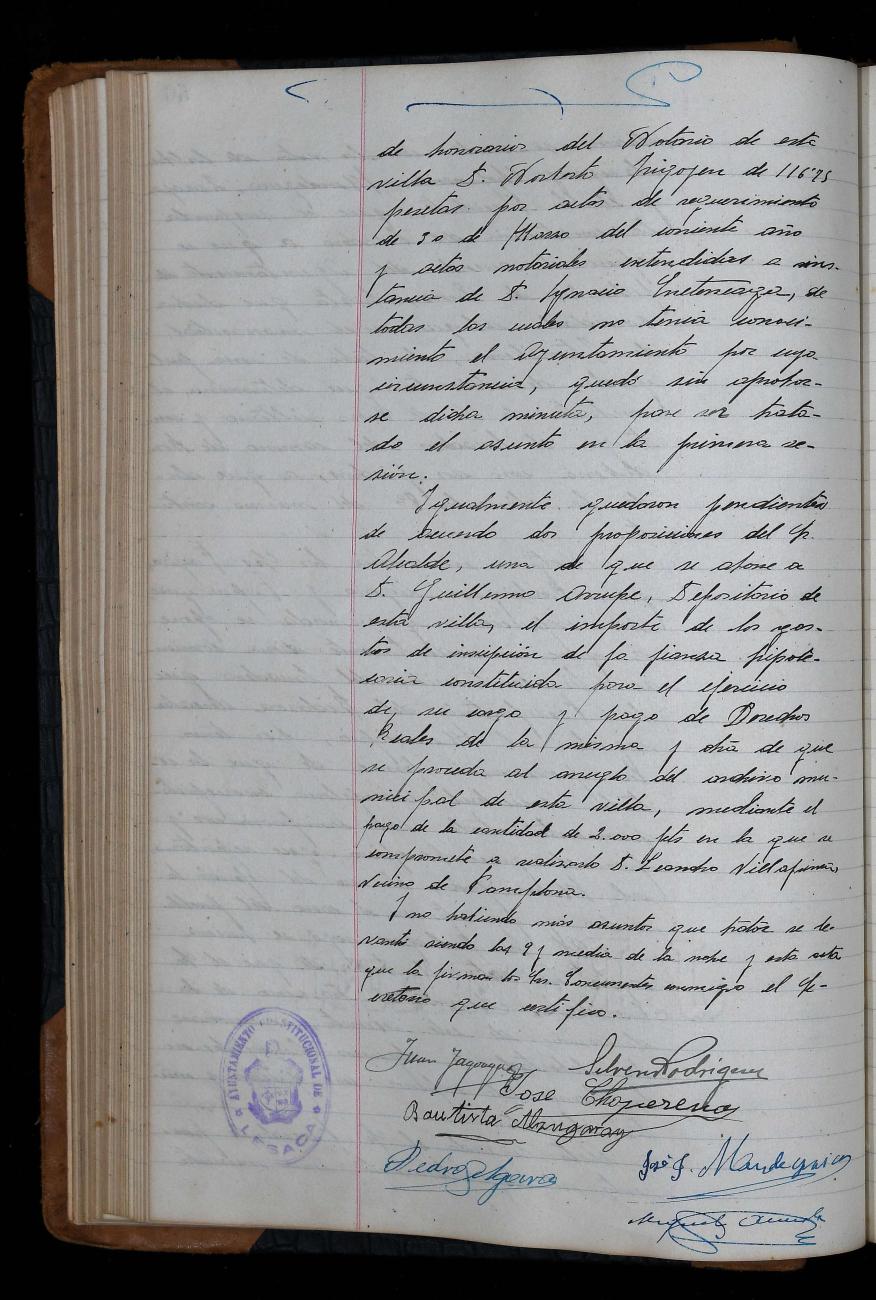 de honorarios del Notario de esta
villa D. Norberto Irigoyen de 116'75
pesetas por actos de requerimiento
de 30 de Marzo del corriente año
y actas notariales extendidas a ins-
tancia de D. Ignacio, de
todas las cuales no tenia conoci-
miento el Ayuntamiento por cuya
circunstancia, quedó sin aprobar-
se dicha minuta, para ser trata-
do el asunto en la primera se-
sión.
Igualmente quedaron pendientes
de acuerdo dos proposiciones del Sr.
Alcalde, una de que se abone a
D. Guillermo Arrupe, Depositario de
esta villa, el importe de los gas-
tos de inscripción de la fianza hipote-
caria constituida para el ejercicio
de su cargo y pago de Derechos
Reales de la misma y otra de que
se proceda al arreglo del archivo mu-
nicipal de esta villa, mediante el
pago de la cantidad de 2.000 pts en la que se
compromete a realizarlo D. Leandro
vecino de Pamplona.
Y no habiendo más asuntos que tratar se le-
vantó siendo las 9 y media de la noche y esta acta
que la firman los Srs. Concurrentes conmigo el Se-
cretario que certifico.
Juan
Silverio Rodriguez
Jose
Bautista
Pedro
José
Miguel
AYUNTAMIENTO CONSTITUCIONAL DE
LESACA